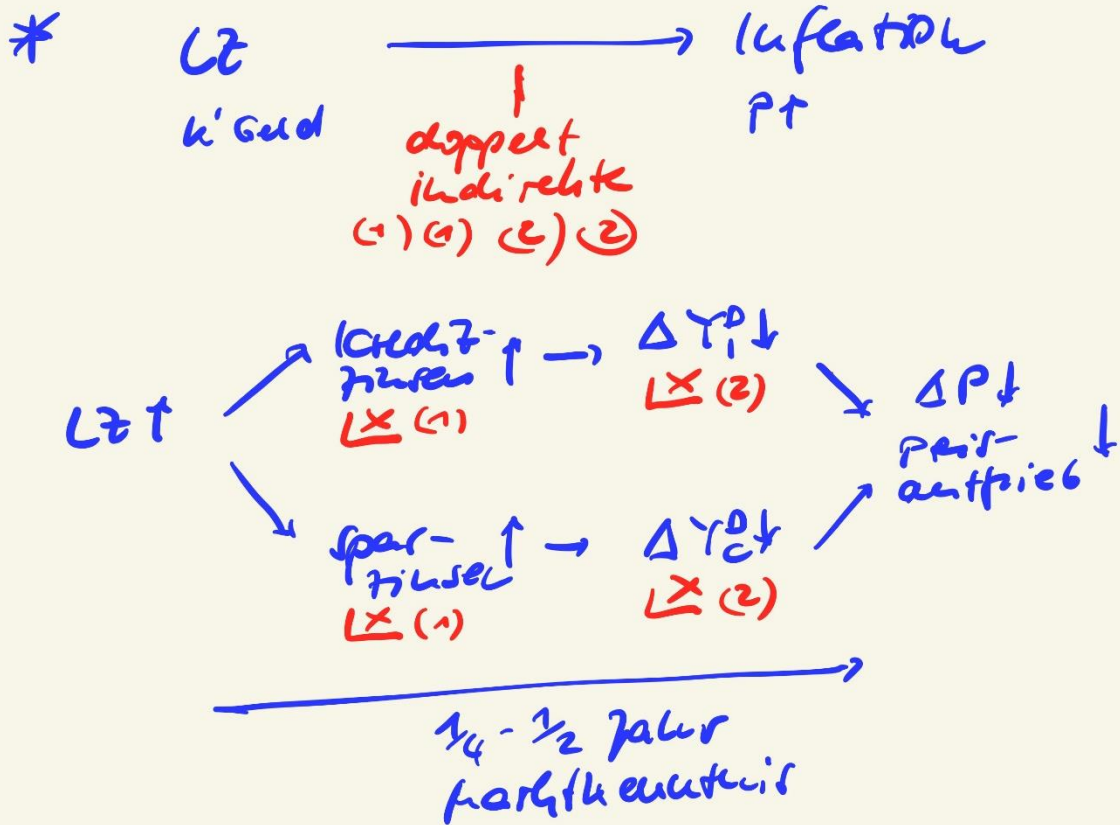 * LZ → Inflation
k' Geld P↑
doppelt
indirekte
(1) (1) (2) (2)
LZ ↑
Kredit-
zinsen ↑ → Δ Y_I^D ↓
x (1) x (2)
Δ P ↓
Preis-
auftrieb ↓
Spar-
zinsen ↑ → Δ Y_C^D ↓
x (1) x (2)
1/4 - 1/2 Jahr